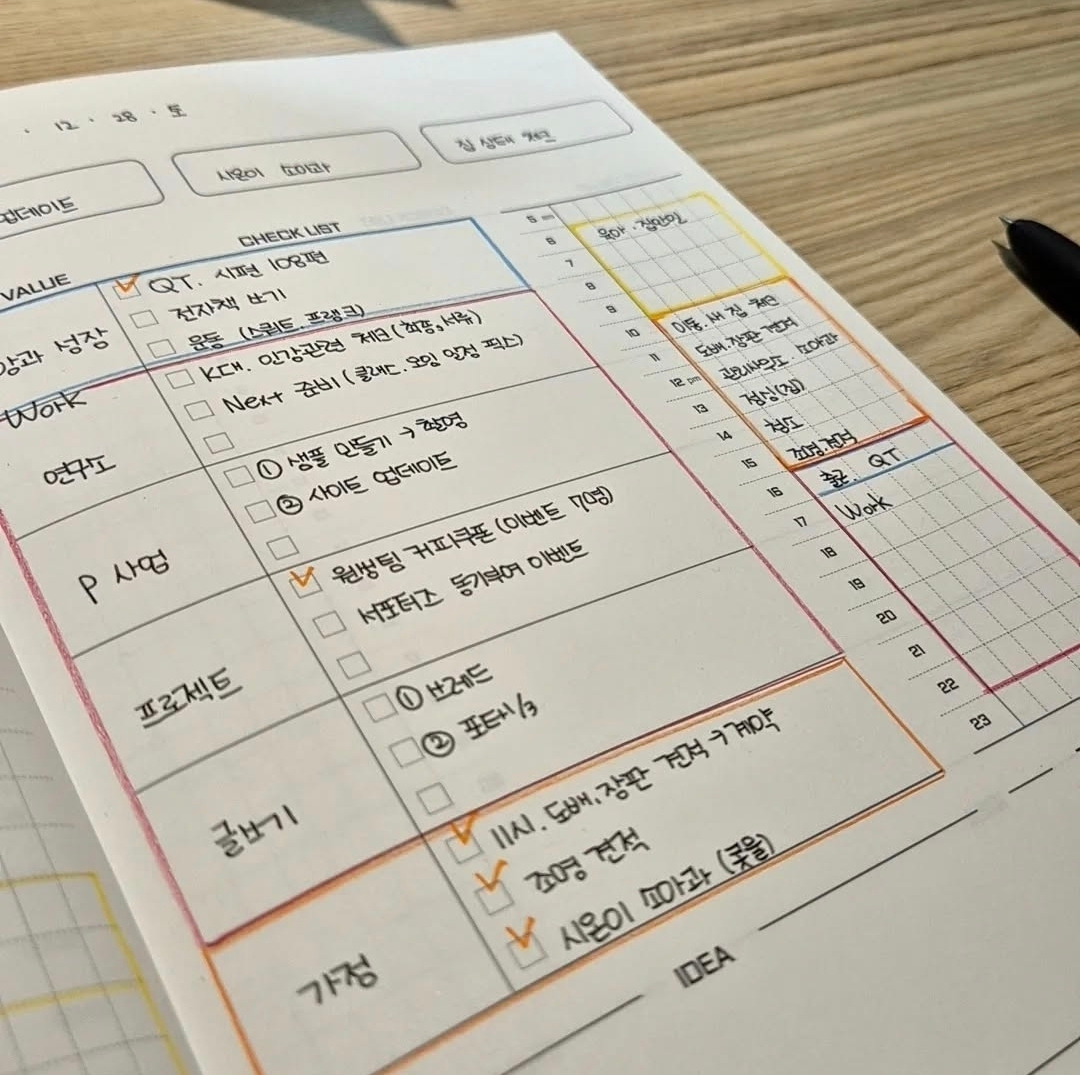 12 · 28 · 토
업데이트
시온이 소아과
집 상태 체크
VALUE
CHECK LIST
QT. 시편 108편
전자책 보기
과 성장
운동 (스쿼트. 프랭크)
Work
K대. 인강관련 체크 (최종, 서류)
Next 준비 (클래드. 오일 일정 픽스)
연구소
① 샘플 만들기 → 촬영
② 사이트 업데이트
P 사업
원씽팀 커피쿠폰 (이벤트 70명)
서포터즈 동기부여 이벤트
프로젝트
① 브레드
②
글쓰기
11시. 도배. 장판 견적 → 계약
조명 견적
시온이 소아과 (콧물)
가정
IDEA
5
6
7
8
9
10
11
12 pm
13
14
15
16
17
18
19
20
21
22
23
육아. 집안일
이동. 새 집 체크
도배. 장판 견적
관리사무소. 소아과
점심 (집)
청소
조명. 견적
출근. QT
Work